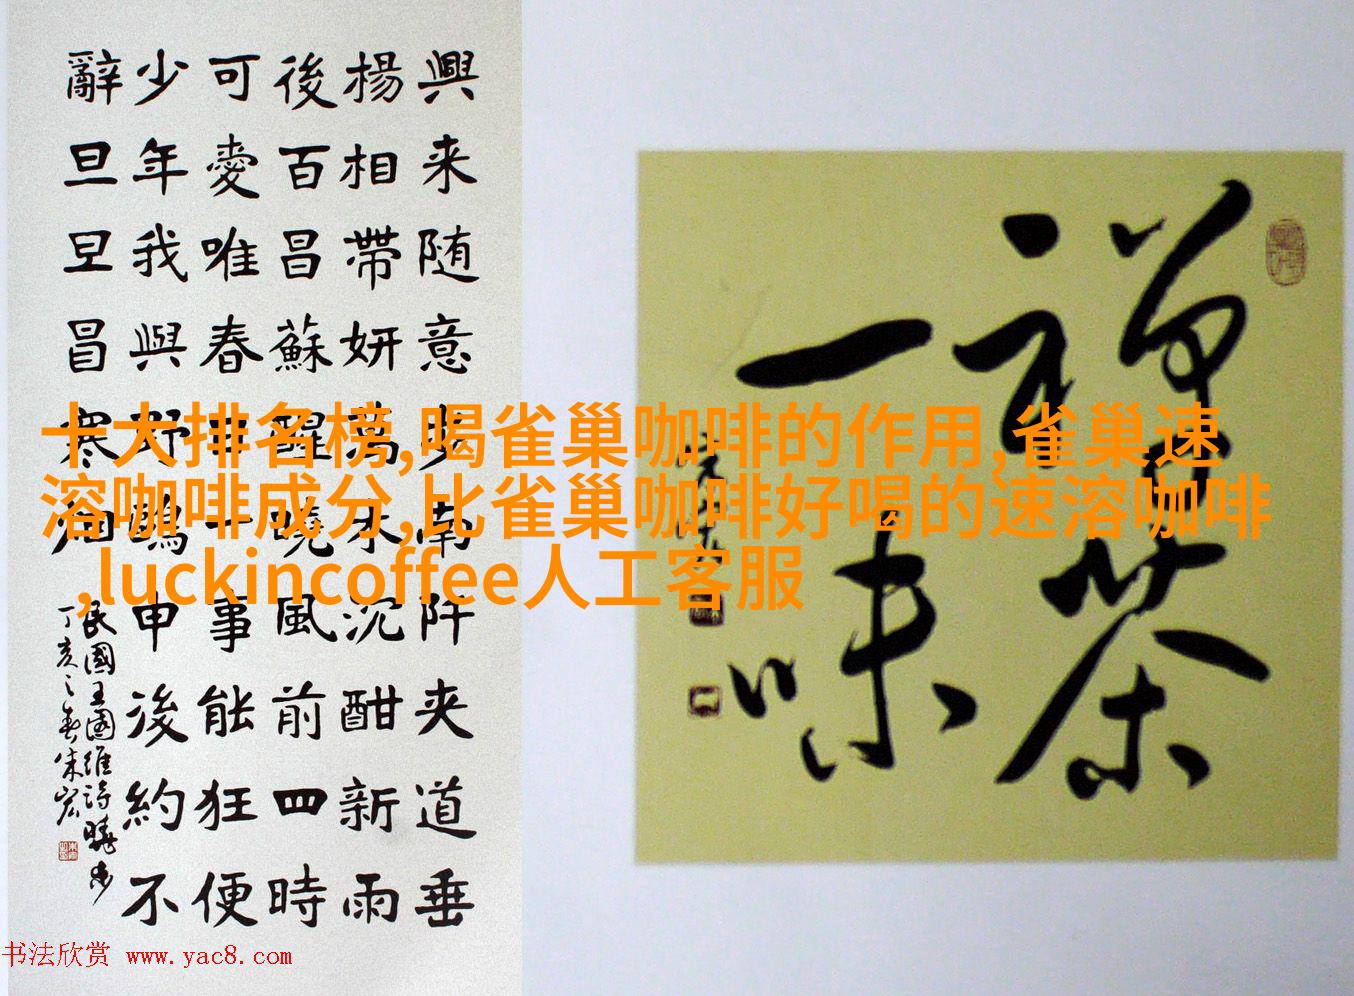 興来随意步南阡夹道垂
楊相帶妍萬木沉酣新雨
後百昌蘇醒曉風前四時
可愛唯春日一事能狂便
少年我與野鷗申後約不
辭旦旦冒寒烟
民國王國維詩曉步
丁亥之春朱宏
禪茶
一味
十大排名榜,喝雀巢咖啡的作用,雀巢速
溶咖啡成分,比雀巢咖啡好喝的速溶咖啡
,luckincoffee人工客服
书法欣赏 www.yac8.com